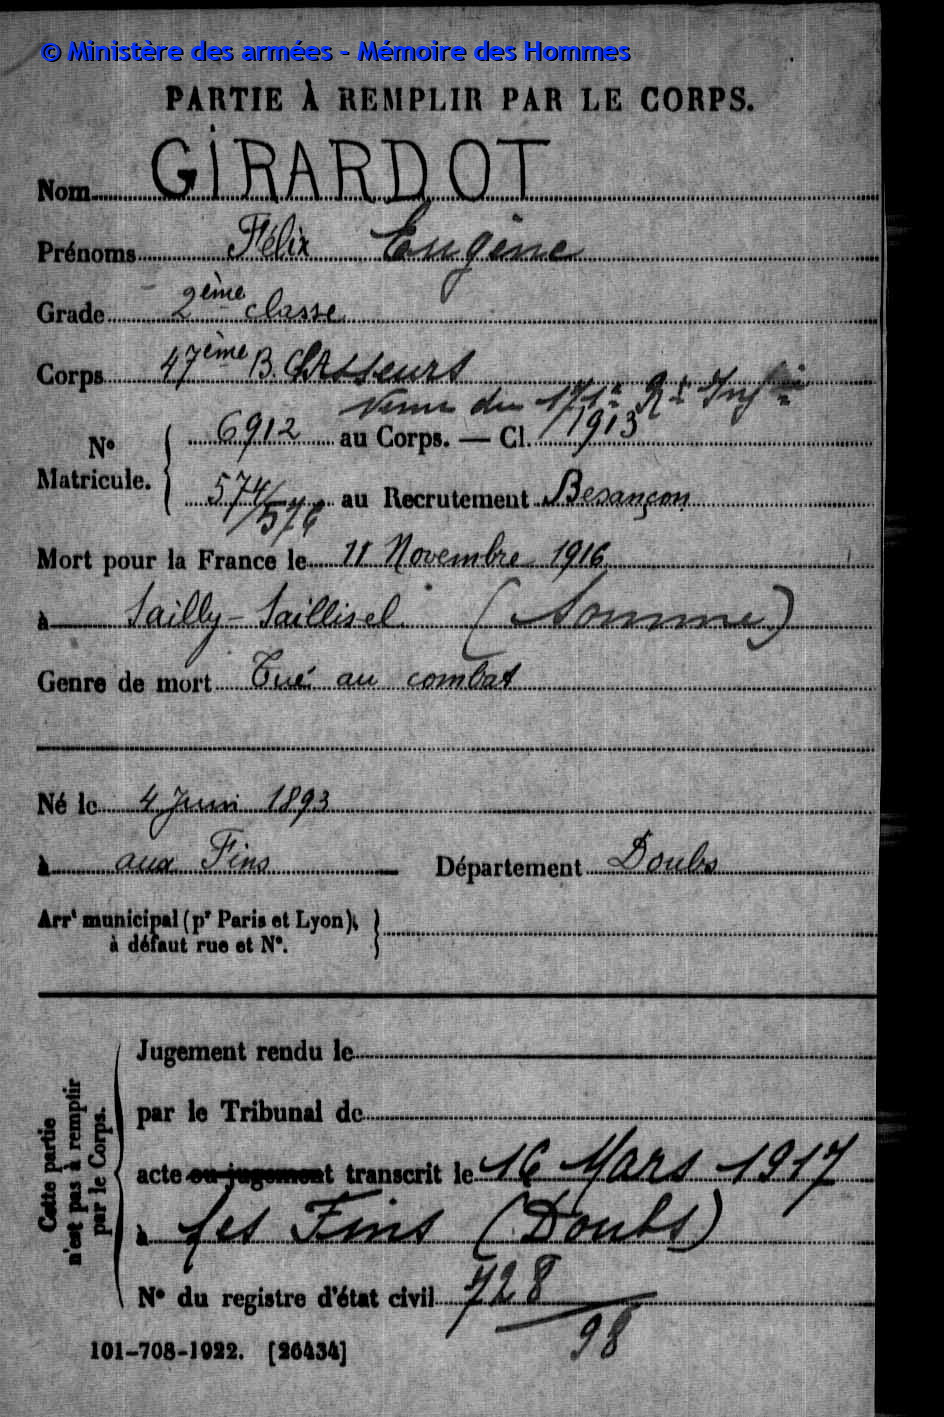 © Ministère des armées - Mémoire des Hommes
PARTIE À REMPLIR PAR LE CORPS.
Nom GIRARDOT
Prénoms Félix Eugène
Grade 2ème classe
Corps 47ème B. Chasseurs
Venu du 171e Rt Infie
N° Matricule. 6912 au Corps. — Cl. 1913
574/576 au Recrutement Besançon
Mort pour la France le 11 Novembre 1916
à Sailly-Saillisel (Somme)
Genre de mort Tué au combat
Né le 4 Juin 1893
à aux Fins Département Doubs
Arrt municipal (pr Paris et Lyon),
à défaut rue et N°.
Cette partie
n'est pas à remplir
par le Corps.
Jugement rendu le
par le Tribunal de
acte ou jugement transcrit le 16 Mars 1917
à les Fins (Doubs)
N° du registre d'état civil 728/98
101-708-1922. [26434]